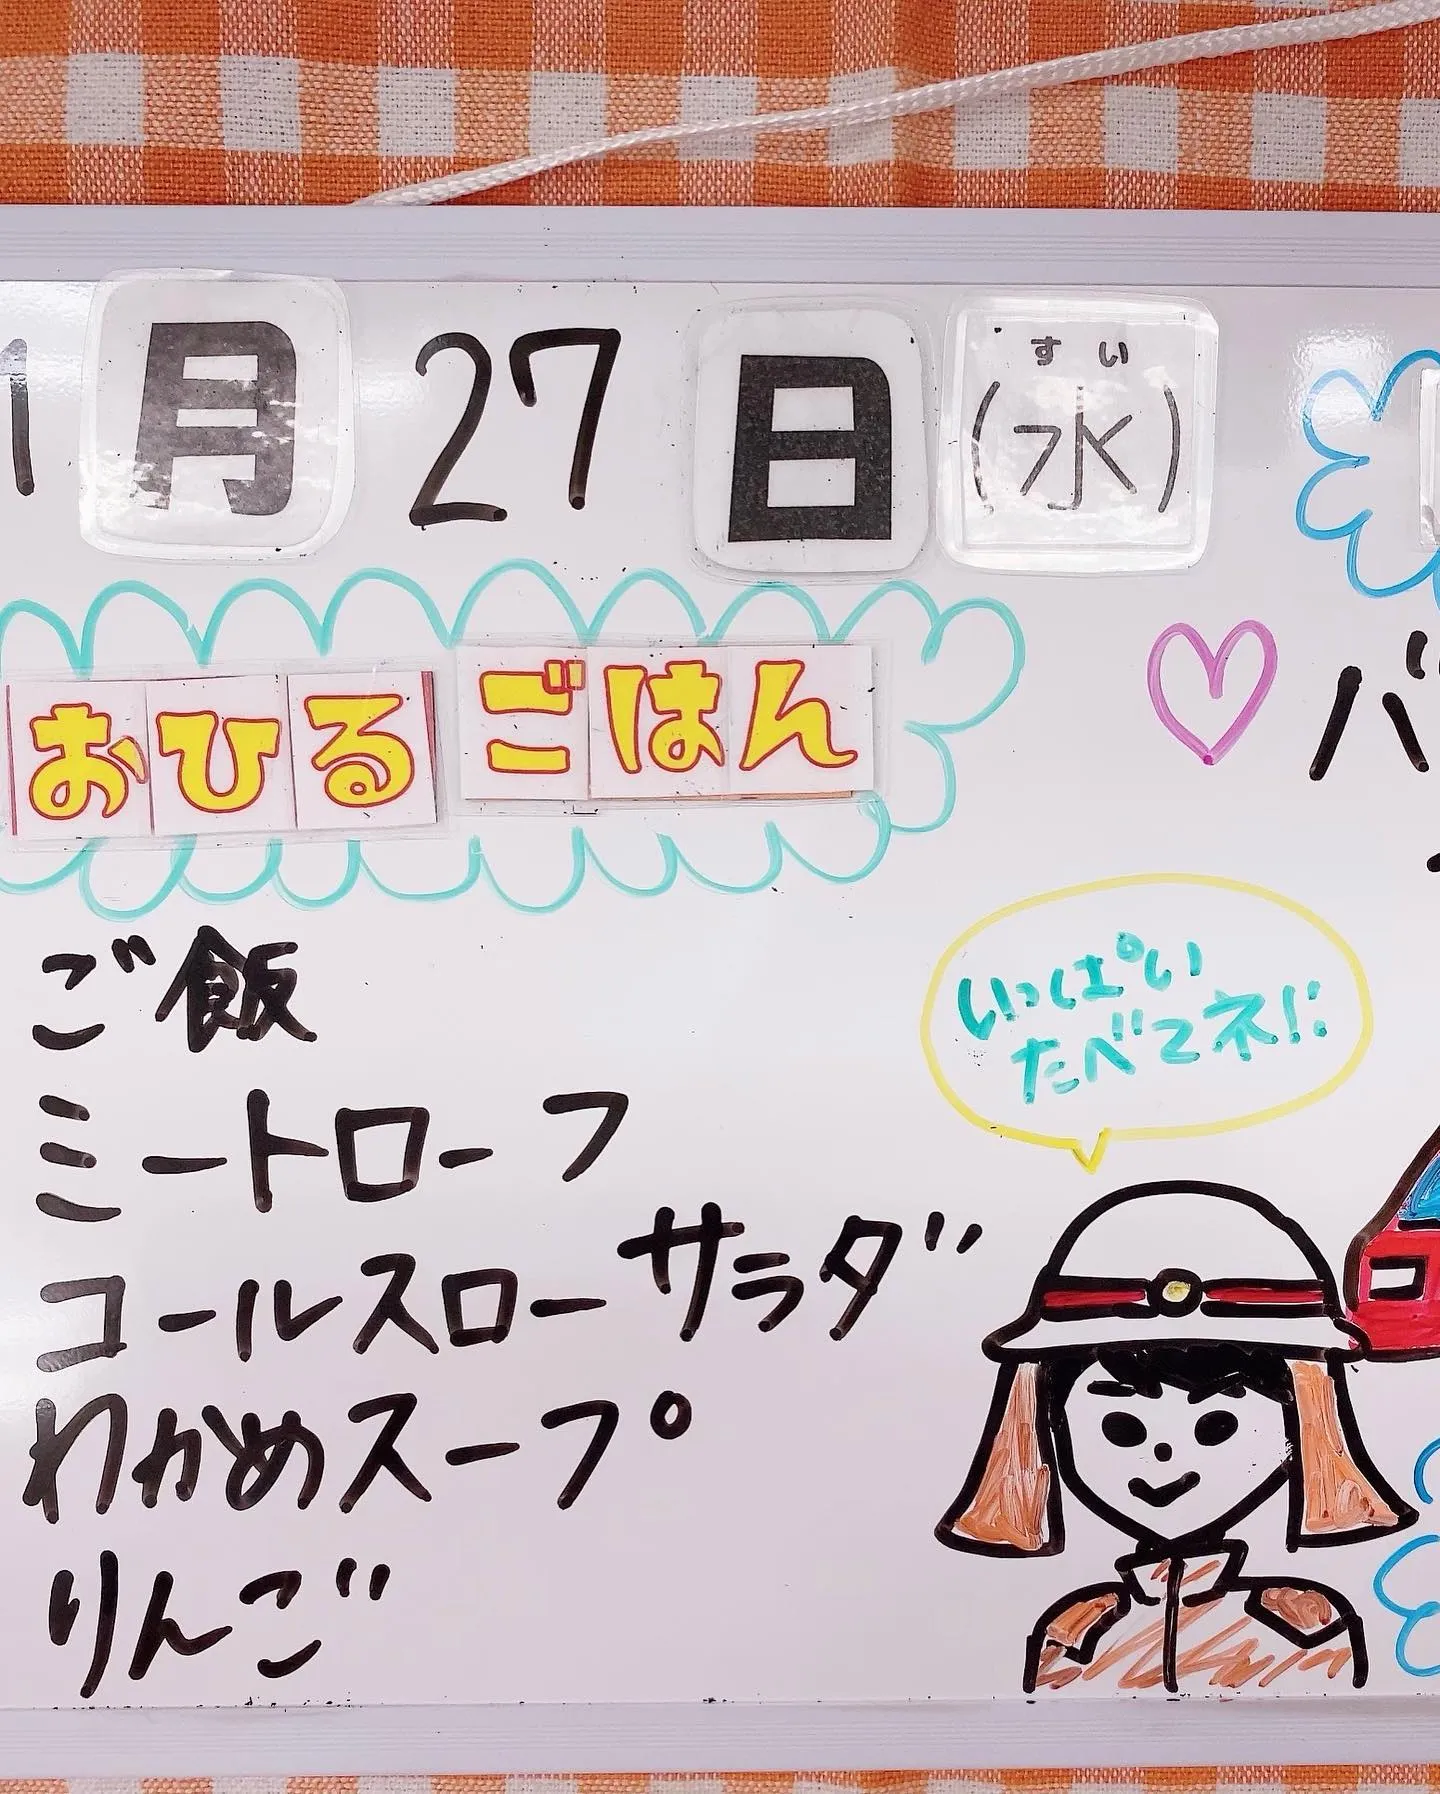 1月27日(水)
すい
おひるごはん
ご飯
ミートローフ
コールスローサラダ
わかめスープ
りんご
バ
いっぱい
たべてネ!!